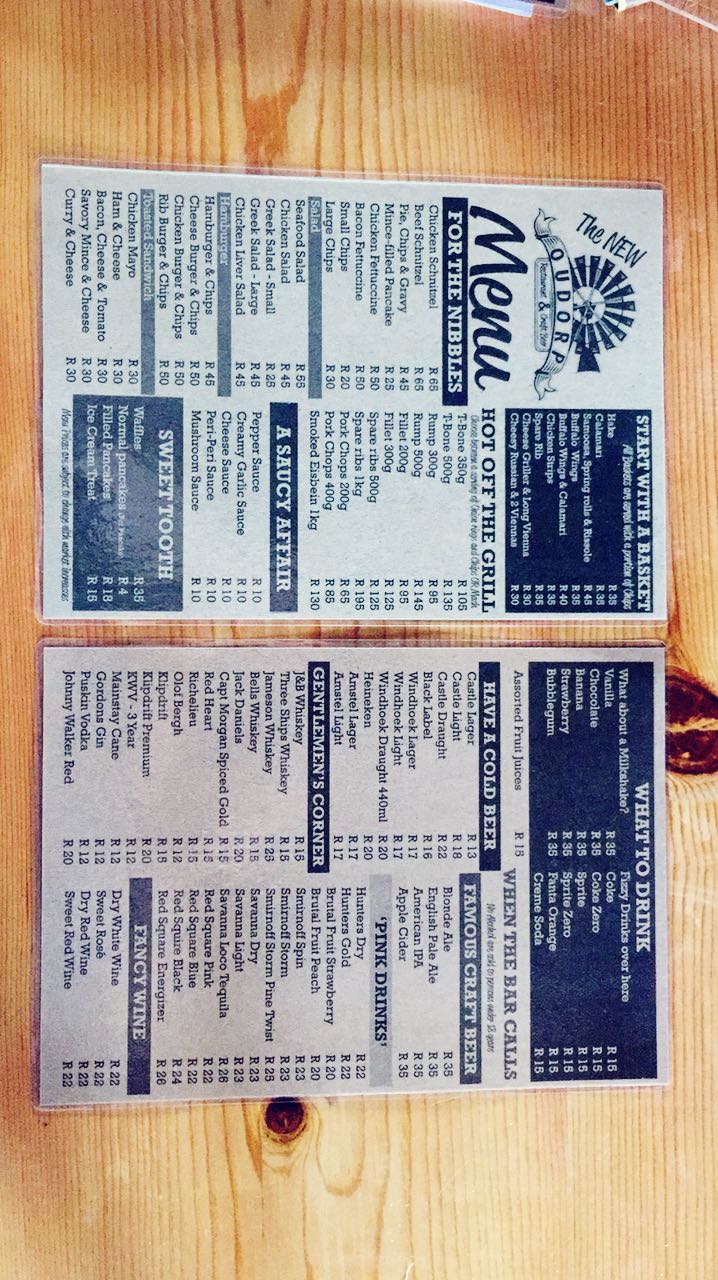 The NEW
OUDORP
Restaurant & Craft Beer
Menu
FOR THE NIBBLES
Chicken Schnitzel R 65
Beef Schnitzel R 65
Pie, Chips & Gravy R 45
Mince-filled Pancake R 25
Chicken Fettuccine R 50
Bacon Fettuccine R 50
Small Chips R 20
Large Chips R 30
Salad
Seafood Salad R 55
Chicken Salad R 45
Greek Salad - Small R 25
Greek Salad - Large R 45
Chicken Liver Salad R 45
Hamburger
Hamburger & Chips R 45
Cheese Burger & Chips R 50
Chicken Burger & Chips R 50
Rib Burger & Chips R 50
Toasted Sandwich
Chicken Mayo R 30
Ham & Cheese R 30
Bacon, Cheese & Tomato R 30
Savory Mince & Cheese R 30
Curry & Cheese R 30
START WITH A BASKET
All Baskets are served with a portion of Chips
Hake R 35
Calamari R 35
Samoosa, Spring rolls & Rissole R 45
Buffalo Wings R 35
Buffalo Wings & Calamari R 40
Chicken Strips R 35
Spare Rib R 35
Cheese Griller & Long Vienna R 30
Cheesy Russian & 2 Viennas R 30
HOT OFF THE GRILL
T-Bone 350g R 105
T-Bone 500g R 135
Rump 300g R 95
Rump 500g R 145
Fillet 200g R 95
Fillet 300g R 125
Spare ribs 500g R 125
Spare ribs 1kg R 195
Pork Chops 200g R 65
Pork Chops 400g R 85
Smoked Eisbein 1kg R 130
A SAUCY AFFAIR
Pepper Sauce R 10
Creamy Garlic Sauce R 10
Cheese Sauce R 10
Peri-Peri Sauce R 10
Mushroom Sauce R 10
SWEET TOOTH
Waffles R 35
Normal pancakes (Per Pancake) R 4
Filled Pancakes R 18
Ice Cream Treat R 15
Menu Prices are subject to change with market increases
WHAT TO DRINK
What about a Milkshake?
Vanilla R 35
Chocolate R 35
Banana R 35
Strawberry R 35
Bubblegum R 35
Fizzy Drinks over here
Coke R 15
Coke Zero R 15
Sprite R 15
Sprite Zero R 15
Fanta Orange R 15
Creme Soda R 15
Assorted Fruit Juices R 15
WHEN THE BAR CALLS
No Alcohol are sold to persons under 18 years
HAVE A COLD BEER
Castle Lager R 13
Castle Light R 18
Castle Draught R 22
Black Label R 16
Windhoek Lager R 17
Windhoek Light R 17
Windhoek Draught 440ml R 20
Heineken R 20
Amstel Lager R 17
Amstel Light R 17
GENTLEMEN'S CORNER
J&B Whiskey R 15
Three Ships Whiskey R 15
Jameson Whiskey R 25
Bells Whiskey R 15
Jack Daniels R 20
Capt Morgan Spiced Gold R 15
Red Heart R 15
Richelieu R 15
Olof Bergh R 12
Klipdrift R 15
Klipdrift Premium R 20
KWV - 3 Year R 12
Mainstay Cane R 12
Gordons Gin R 12
Puskin Vodka R 12
Johnny Walker Red R 20
FAMOUS CRAFT BEER
Blonde Ale R 35
English Pale Ale R 35
American IPA R 35
Apple Cider R 35
'PINK DRINKS'
Hunters Dry R 22
Hunters Gold R 22
Brutal Fruit Strawberry R 20
Brutal Fruit Peach R 20
Smirnoff Spin R 23
Smirnoff Storm R 23
Smirnoff Storm Pine Twist R 25
Savanna Dry R 23
Savanna Light R 23
Savanna Loco Tequila R 26
Red Square Pink R 22
Red Square Blue R 22
Red Squire Black R 24
Red Square Energizer R 26
FANCY WINE
Dry White Wine R 22
Sweet Rosé R 22
Dry Red Wine R 22
Sweet Red Wine R 22